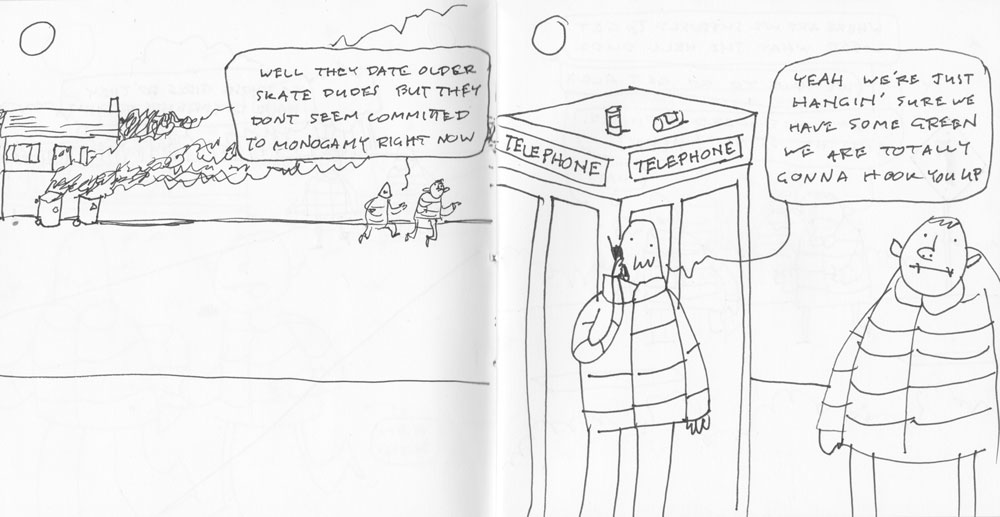 WELL THEY DATE OLDER
SKATE DUDES BUT THEY
DONT SEEM COMMITTED
TO MONOGAMY RIGHT NOW
TELEPHONE
TELEPHONE
YEAH WE'RE JUST
HANGIN' SURE WE
HAVE SOME GREEN
WE ARE TOTALLY
GONNA HOOK YOU UP